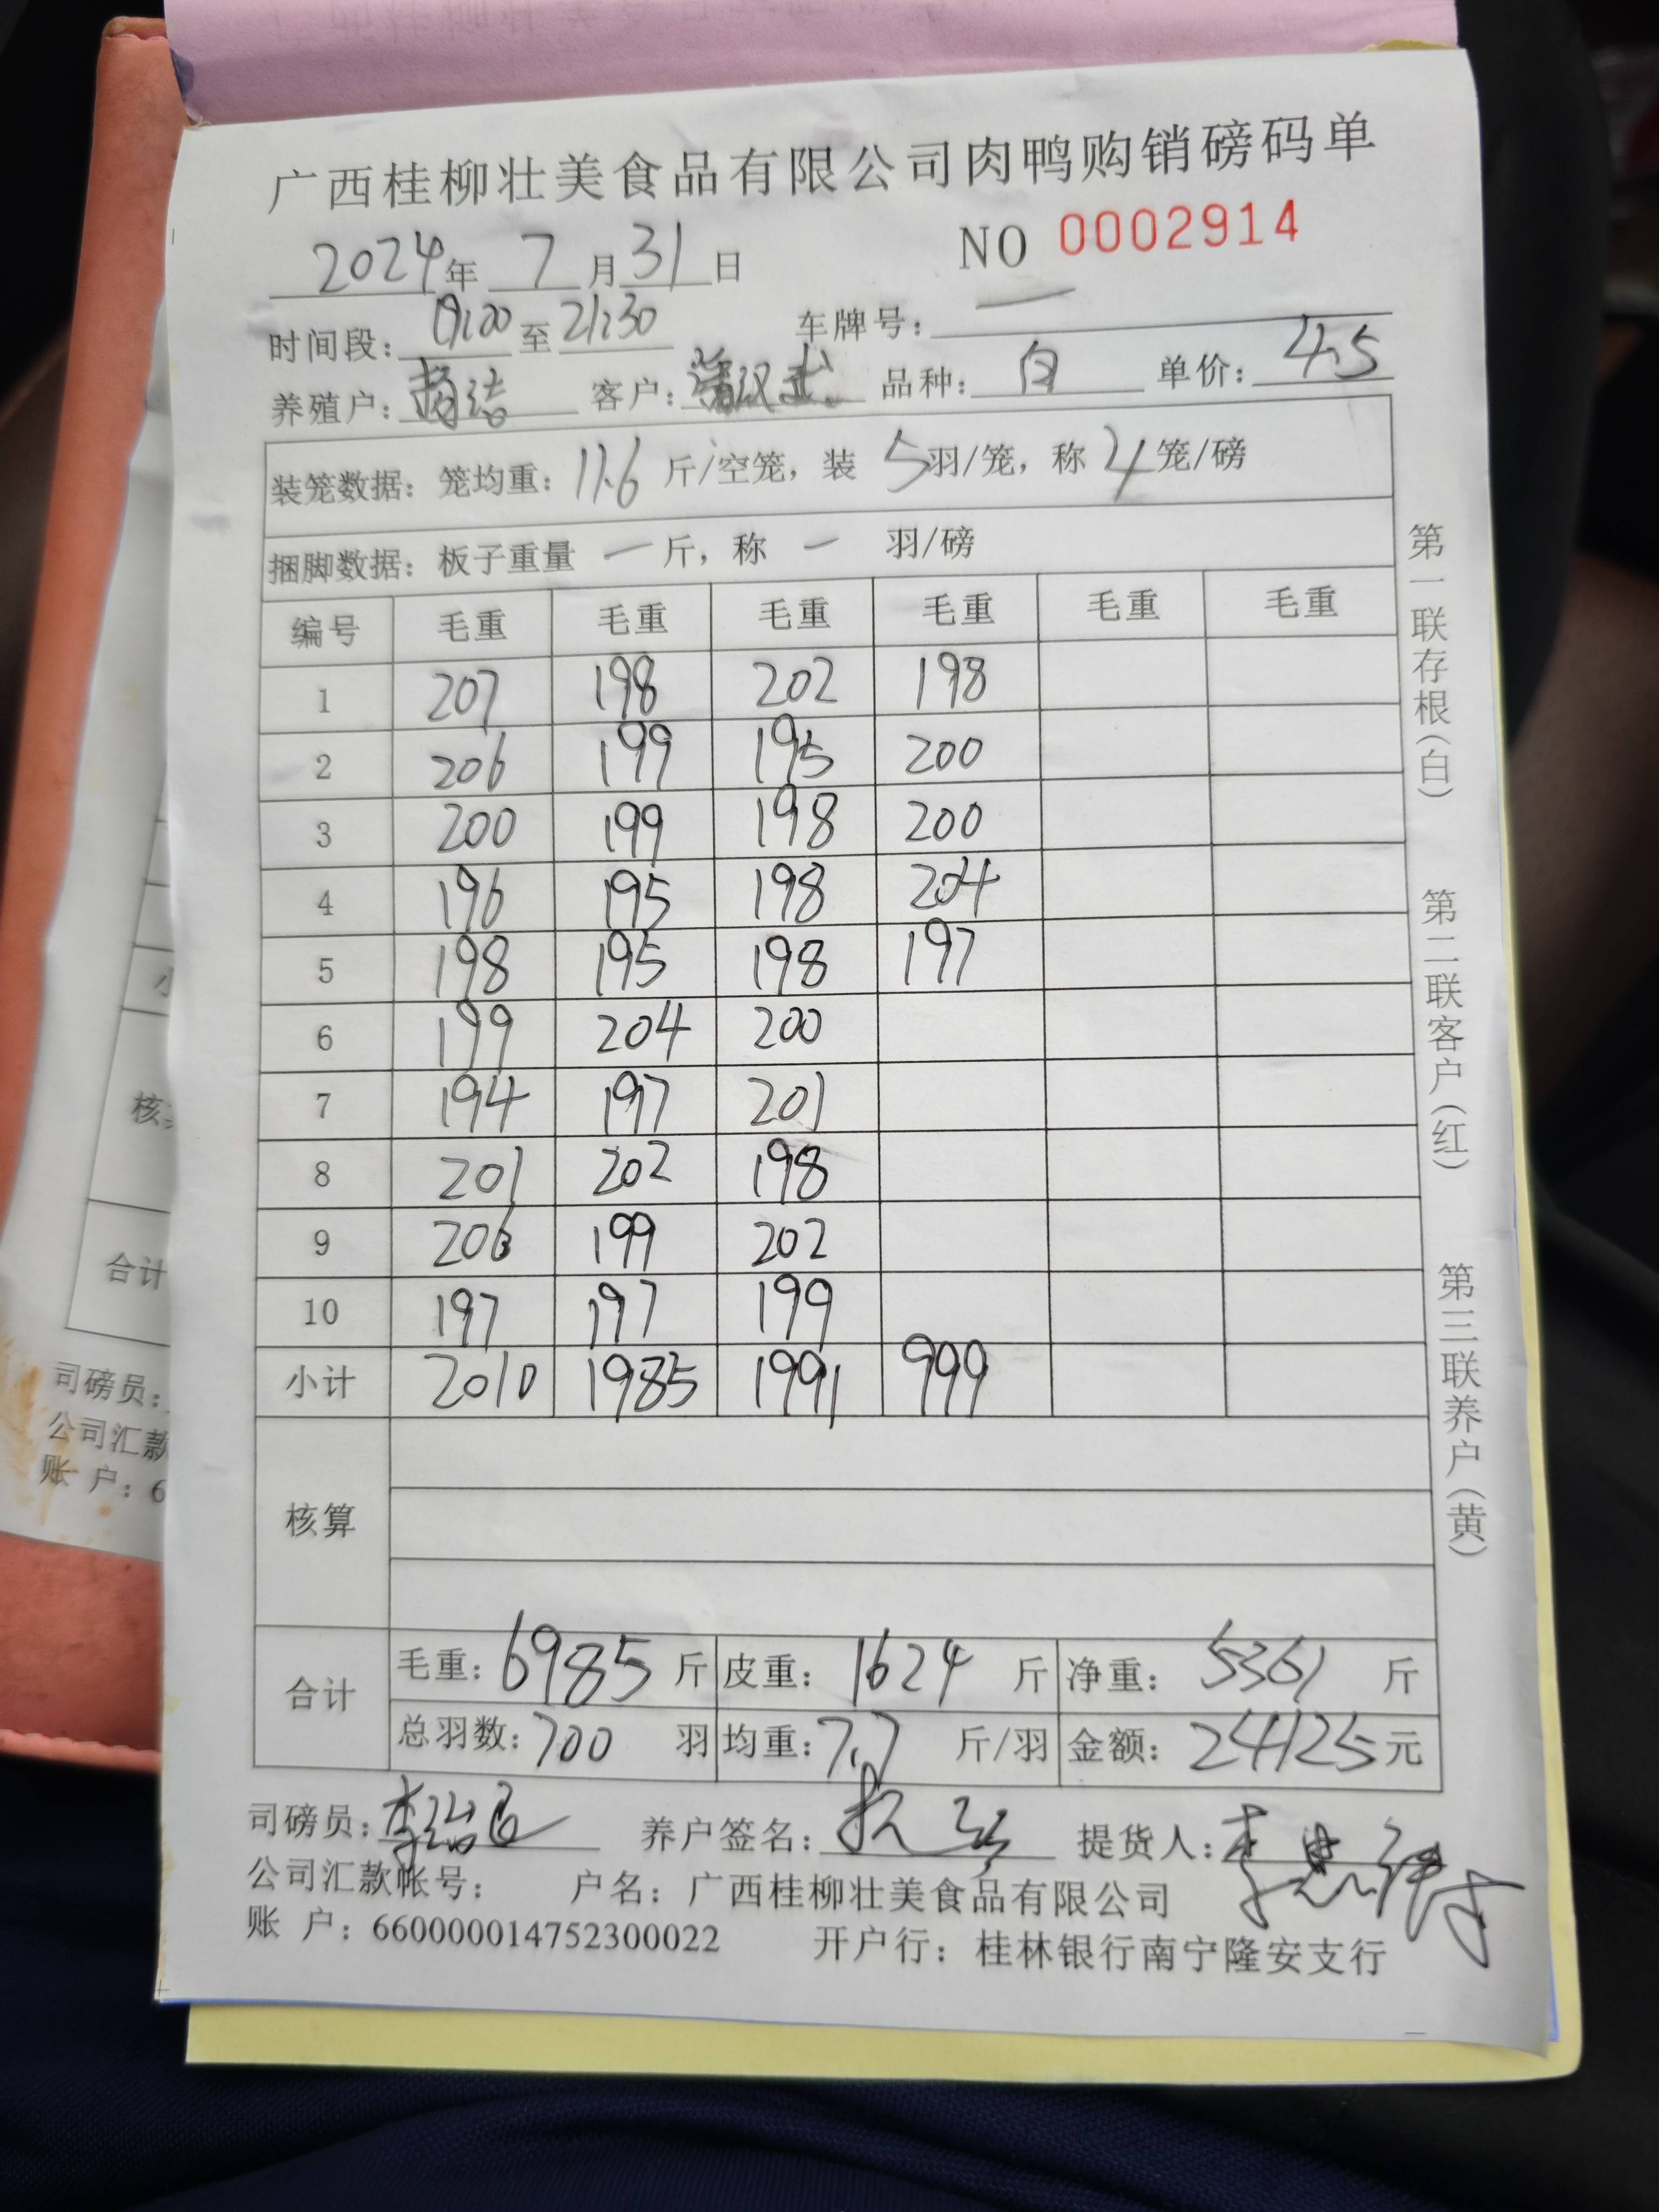 广西桂柳壮美食品有限公司肉鸭购销磅码单
2024年 7月31日 NO 0002914
时间段：19:20至21:30 车牌号：一
养殖户： 客户： 品种：白 单价：4.5
装笼数据：笼均重：11.6斤/空笼，装 5羽/笼，称 4笼/磅
捆脚数据：板子重量 一 斤，称 一 羽/磅
编号 毛重 毛重 毛重 毛重 毛重 毛重
1 207 198 202 198
2 206 199 195 200
3 200 199 198 200
4 196 195 198 204
5 198 195 198 197
6 199 204 200
7 194 197 201
8 201 202 198
9 206 199 202
10 197 197 199
小计 2010 1985 1991 999
核算
合计 毛重：6985斤 皮重：1624斤 净重：5361斤
总羽数：700羽 均重：7.7斤/羽 金额：24125元
司磅员： 养户签名： 提货人：
公司汇款帐号： 户名：广西桂柳壮美食品有限公司
账 户：660000014752300022 开户行：桂林银行南宁隆安支行
第一联存根（白）
第二联客户（红）
第三联养户（黄）
合计
司磅员：
公司汇款
账 户：6